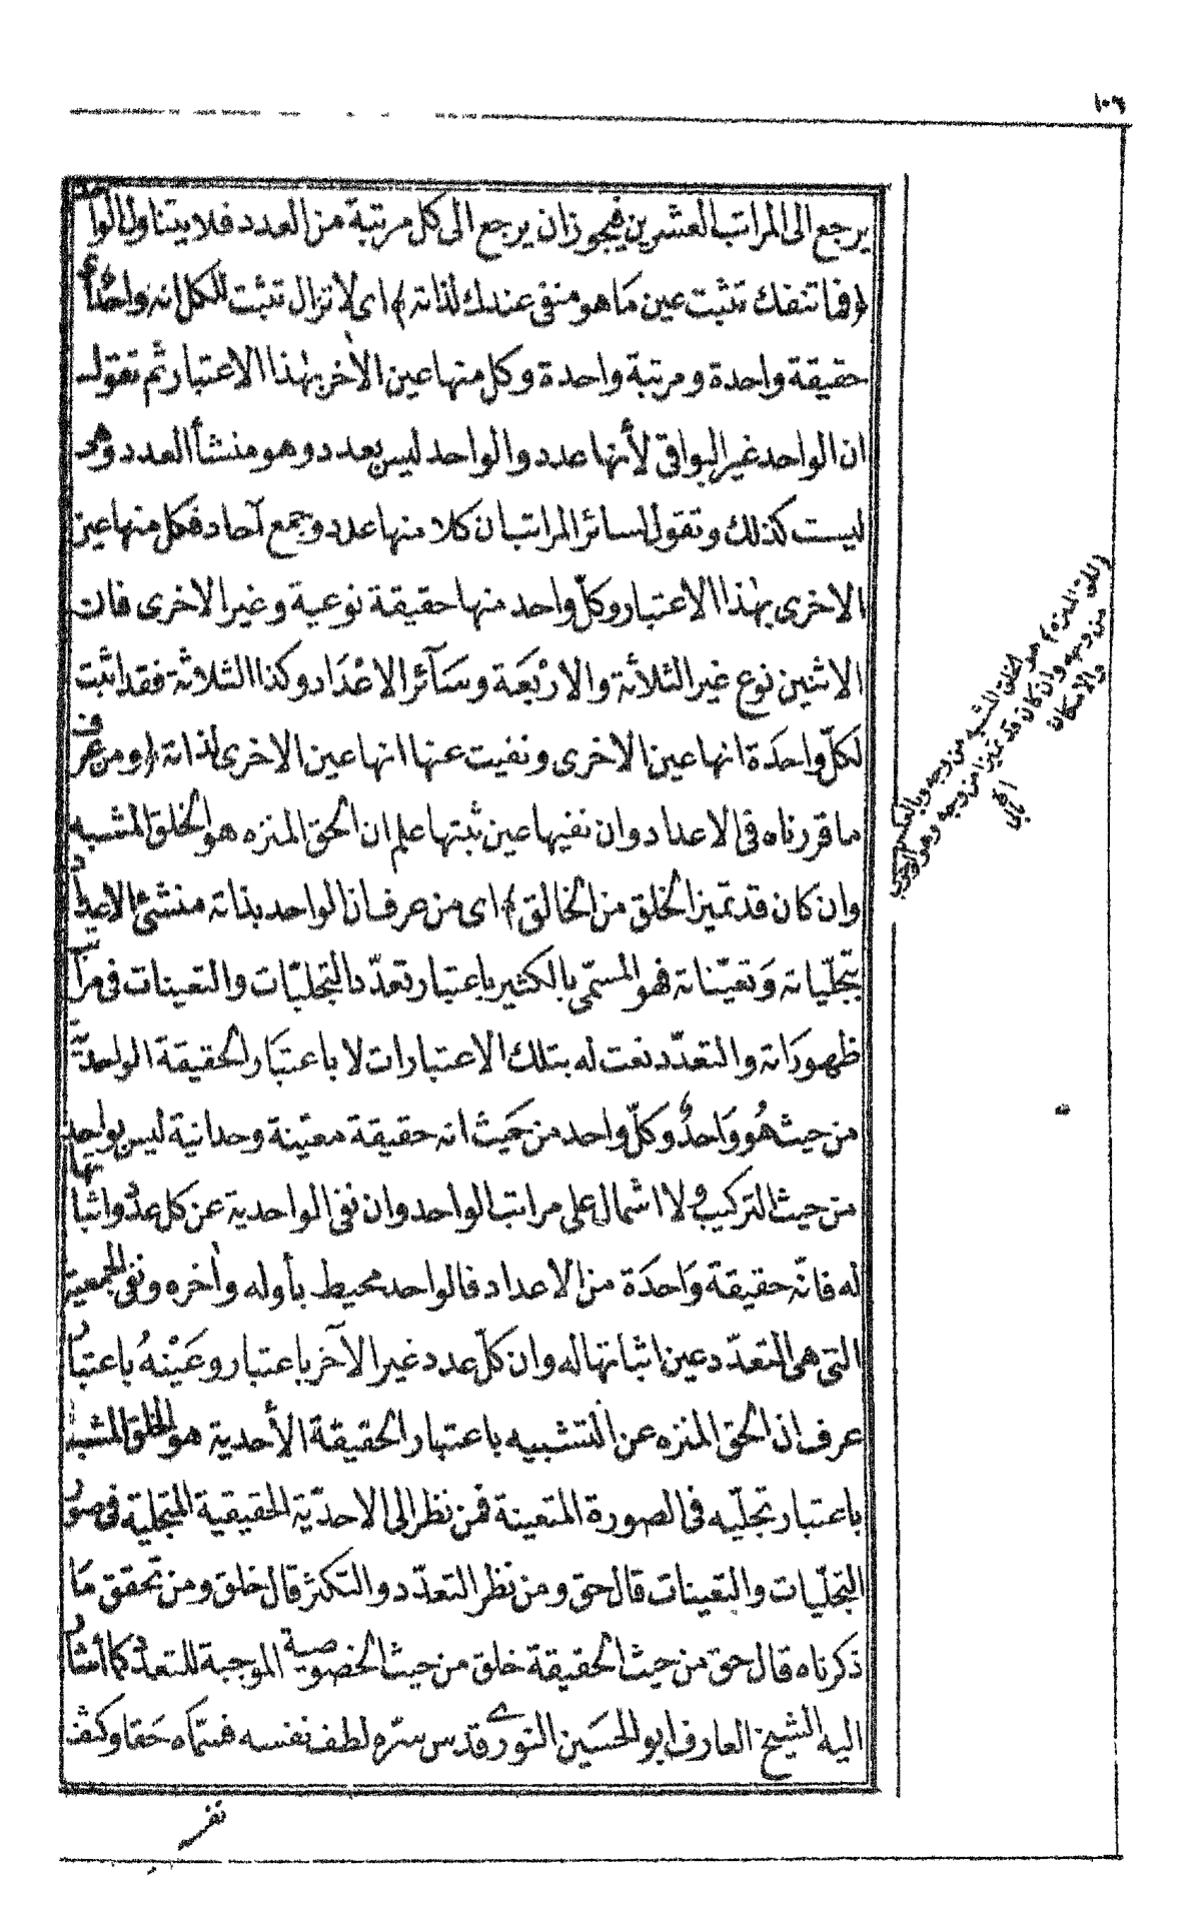 ١٠٦
يرجع الى المراتب العشرين فيجوز ان يرجع الى كل مرتبة من العدد فلا يتناول الواحد
﴿فما تنفك تثبت عين ما هو منفى عندك لذاته﴾ اى لا تزال تثبت للكل انه واحد أى
حقيقة واحدة ومرتبة واحدة وكل منها عين الاخر بهذا الاعتبار ثم تقول
ان الواحد غير البواقى لأنها عدد والواحد ليس بعدد وهو منشأ العدد وهى
ليست كذلك وتقول لسائر المراتب ان كلا منها عدد وجمع آحاد فكل منها عين
الاخرى بهذا الاعتبار وكلّ واحد منها حقيقة نوعية وغير الاخرى فان
الاثنين نوع غير الثلاثة والاربعة وسآئر الاعداد وكذا الثلاثة فقد اثبت
لكلّ واحدة انها عين الاخرى ونفيت عنها انها عين الاخرى لذاته ﴿ومن عرف
ما قررناه فى الاعداد وان نفيها عين ثبتها علم ان الحق المنزه هو الخلق المشبه
وان كان قد تميز الخلق من الخالق﴾ اى من عرف ان الواحد بذاته منشئ الاعداد
بتجلّياته وتعيّناته فهو المسمّى بالكثير باعتبار تعدّد التجلّيات والتعينات فى مراتب
ظهوراته والتعدّد نعت له بتلك الاعتبارات لا باعتبار الحقيقة الواحديّة
من حيث هُو وَاحدٌ وكلّ واحد من حيث انه حقيقة معيّنة وحدانية ليس بواحد
من حيث التركيب ولا اشمال على مراتب الواحد وان نفى الواحدية عن كل عدد واثباتها
له فانّه حقيقة وَاحدَة من الاعداد فالواحد محيط بأوله واٰخره ونفى الجمعية
التى هى التعدّد عين اثباتها له وان كلّ عدد غير الآخر باعتبار وعَيْنهُ باعتبار
عرف ان الحق المنزه عن التشبيه باعتبار الحقيقة الأحدية هو الخلق المشبه
باعتبار تجلّيه فى الصورة المتعينة فمن نظر الى الاحديّة الحقيقية المتجلية فى صور
التجلّيات والتعينات قال حق ومن نظر التعدّد والتكثر قال خلق ومن تحقق مَا
ذكرناه قال حق من حيث الحقيقة خلق من حيث الخصوصية الموجبة للتعدّد كما أشار
اليه الشيخ العارف ابو الحسَين النورى قدس سرّه لطف نفسه فسمّاه حَقا وكثف
نفسه
والحق المنزه هو الخلق المشبه من وجه وبالعكس
من وجه وان كان قد تميزا من وجه وهو الوجوب
والامكان